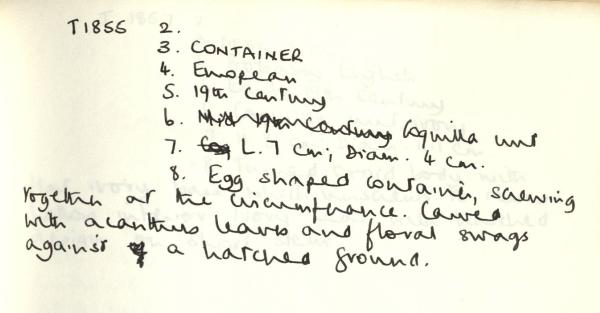 T1855 2.
3. CONTAINER
4. European
5. 19th Century
6. Mid 19th Century Coquilla nut
7. L. 7 cm; Diam. 4 cm.
8. Egg shaped container, screwing
together at the circumference. Carved
with acanthus leaves and floral swags
against a hatched ground.